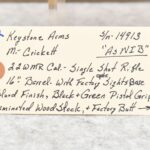 Keystone Arms S/n- 14913
M- Crickett "As NIB"
.22 WMR Cal- Single Shot Rifle
16" Barrel- With Factory Sights Base
Finish, Black + Green Pistol Grip
Laminated Wood Stock, + Factory Butt